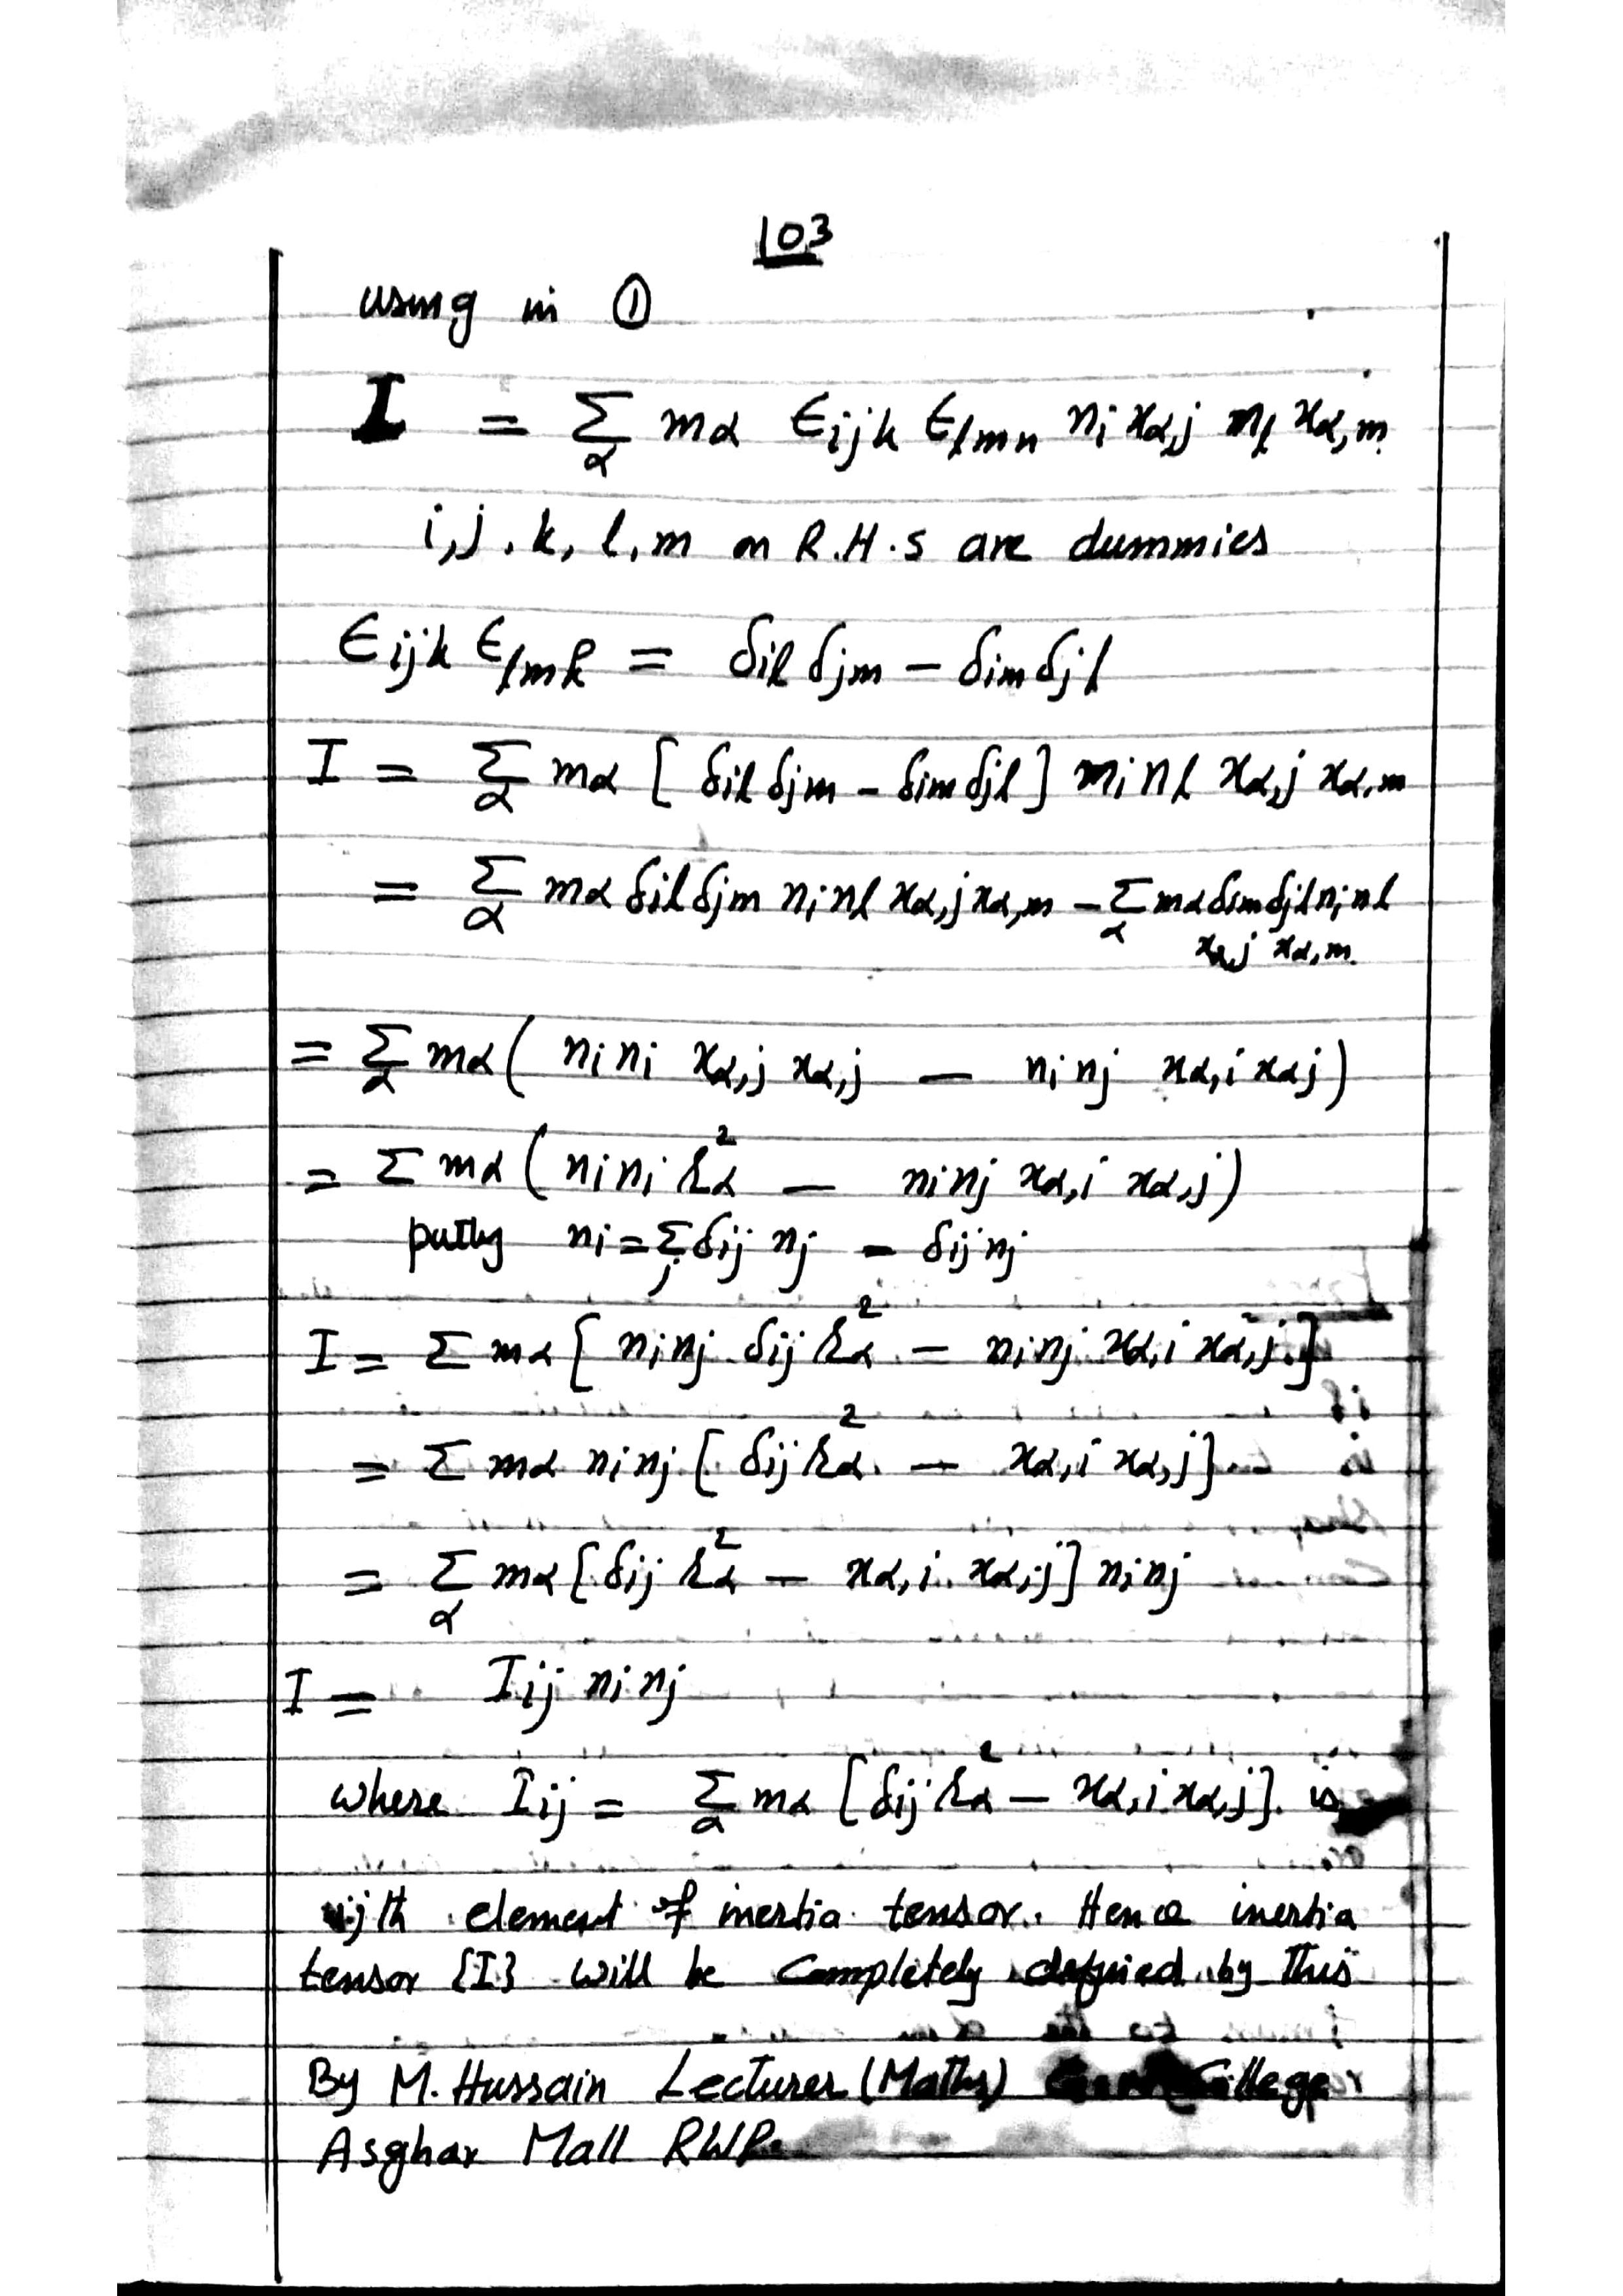 103
using in ①
I = Σ_α mα ϵijk ϵlmn ni xα,j nl xα,m.
i,j,k,l,m on R.H.S are dummies
ϵijk ϵlmk = δil δjm – δim δjl
I = Σ_α mα [ δil δjm – δim δjl ] ni nl xα,j xα,m
= Σ_α mα δil δjm ni nl xα,j xα,m – Σ_α mα δim δjl ni nl
xα,j xα,m.
= Σ_α mα ( ni ni xα,j xα,j – ni nj xα,i xαj )
= Σ mα ( ni ni rα² – ni nj xα,i xα,j )
putty ni = Σ_j δij nj = δij nj
I = Σ mα [ ni nj δij rα² – ni nj xα,i xα,j ]
= Σ mα ni nj [ δij rα² – xα,i xα,j ]
= Σ_α mα [ δij rα² – xα,i xα,j ] ni nj
I = Iij ni nj
where Iij = Σ_α mα [ δij rα² – xα,i xα,j ] is
ijth element of inertia tensor. Hence inertia
tensor {I} will be completely defined by this
By M. Hussain Lecturer (Maths) College
Asghar Mall RWP.